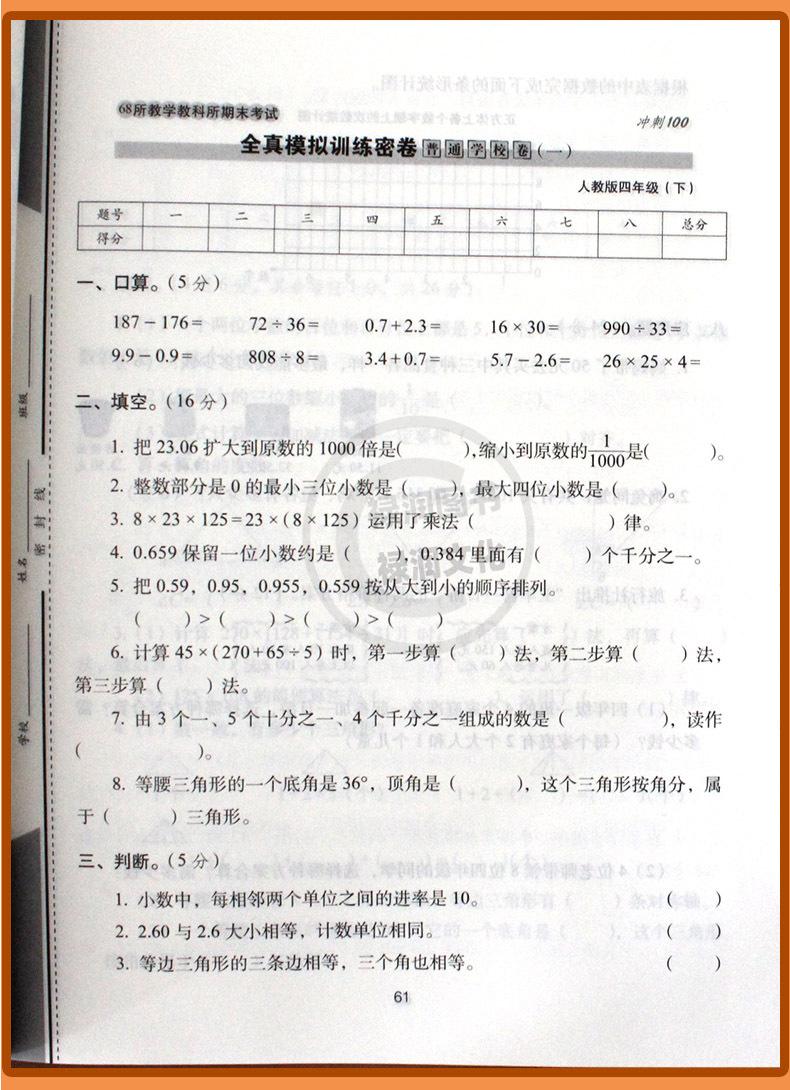 68所教学教科所期末考试
冲刺100
全真模拟训练密卷 普通学校卷(一)
人教版四年级(下)
题号 一 二 三 四 五 六 七 八 总分
得分
一、口算。(5分)
187-176= 72÷36= 0.7+2.3= 16×30= 990÷33=
9.9-0.9= 808÷8= 3.4+0.7= 5.7-2.6= 26×25×4=
二、填空。(16分)
1. 把23.06扩大到原数的1000倍是( ),缩小到原数的1/1000是( )。
2. 整数部分是0的最小三位小数是( ),最大四位小数是( )。
3. 8×23×125=23×(8×125)运用了乘法( )律。
4. 0.659保留一位小数约是( ),0.384里面有( )个千分之一。
5. 把0.59,0.95,0.955,0.559按从大到小的顺序排列。
( )>( )>( )>( )
6. 计算45×(270+65÷5)时,第一步算( )法,第二步算( )法,
第三步算( )法。
7. 由3个一、5个十分之一、4个千分之一组成的数是( ),读作
( )。
8. 等腰三角形的一个底角是36°,顶角是( ),这个三角形按角分,属
于( )三角形。
三、判断。(5分)
1. 小数中,每相邻两个单位之间的进率是10。 ( )
2. 2.60与2.6大小相等,计数单位相同。 ( )
3. 等边三角形的三条边相等,三个角也相等。 ( )
61
班级
姓名
学校
密封线
禄润图书
禄润文化